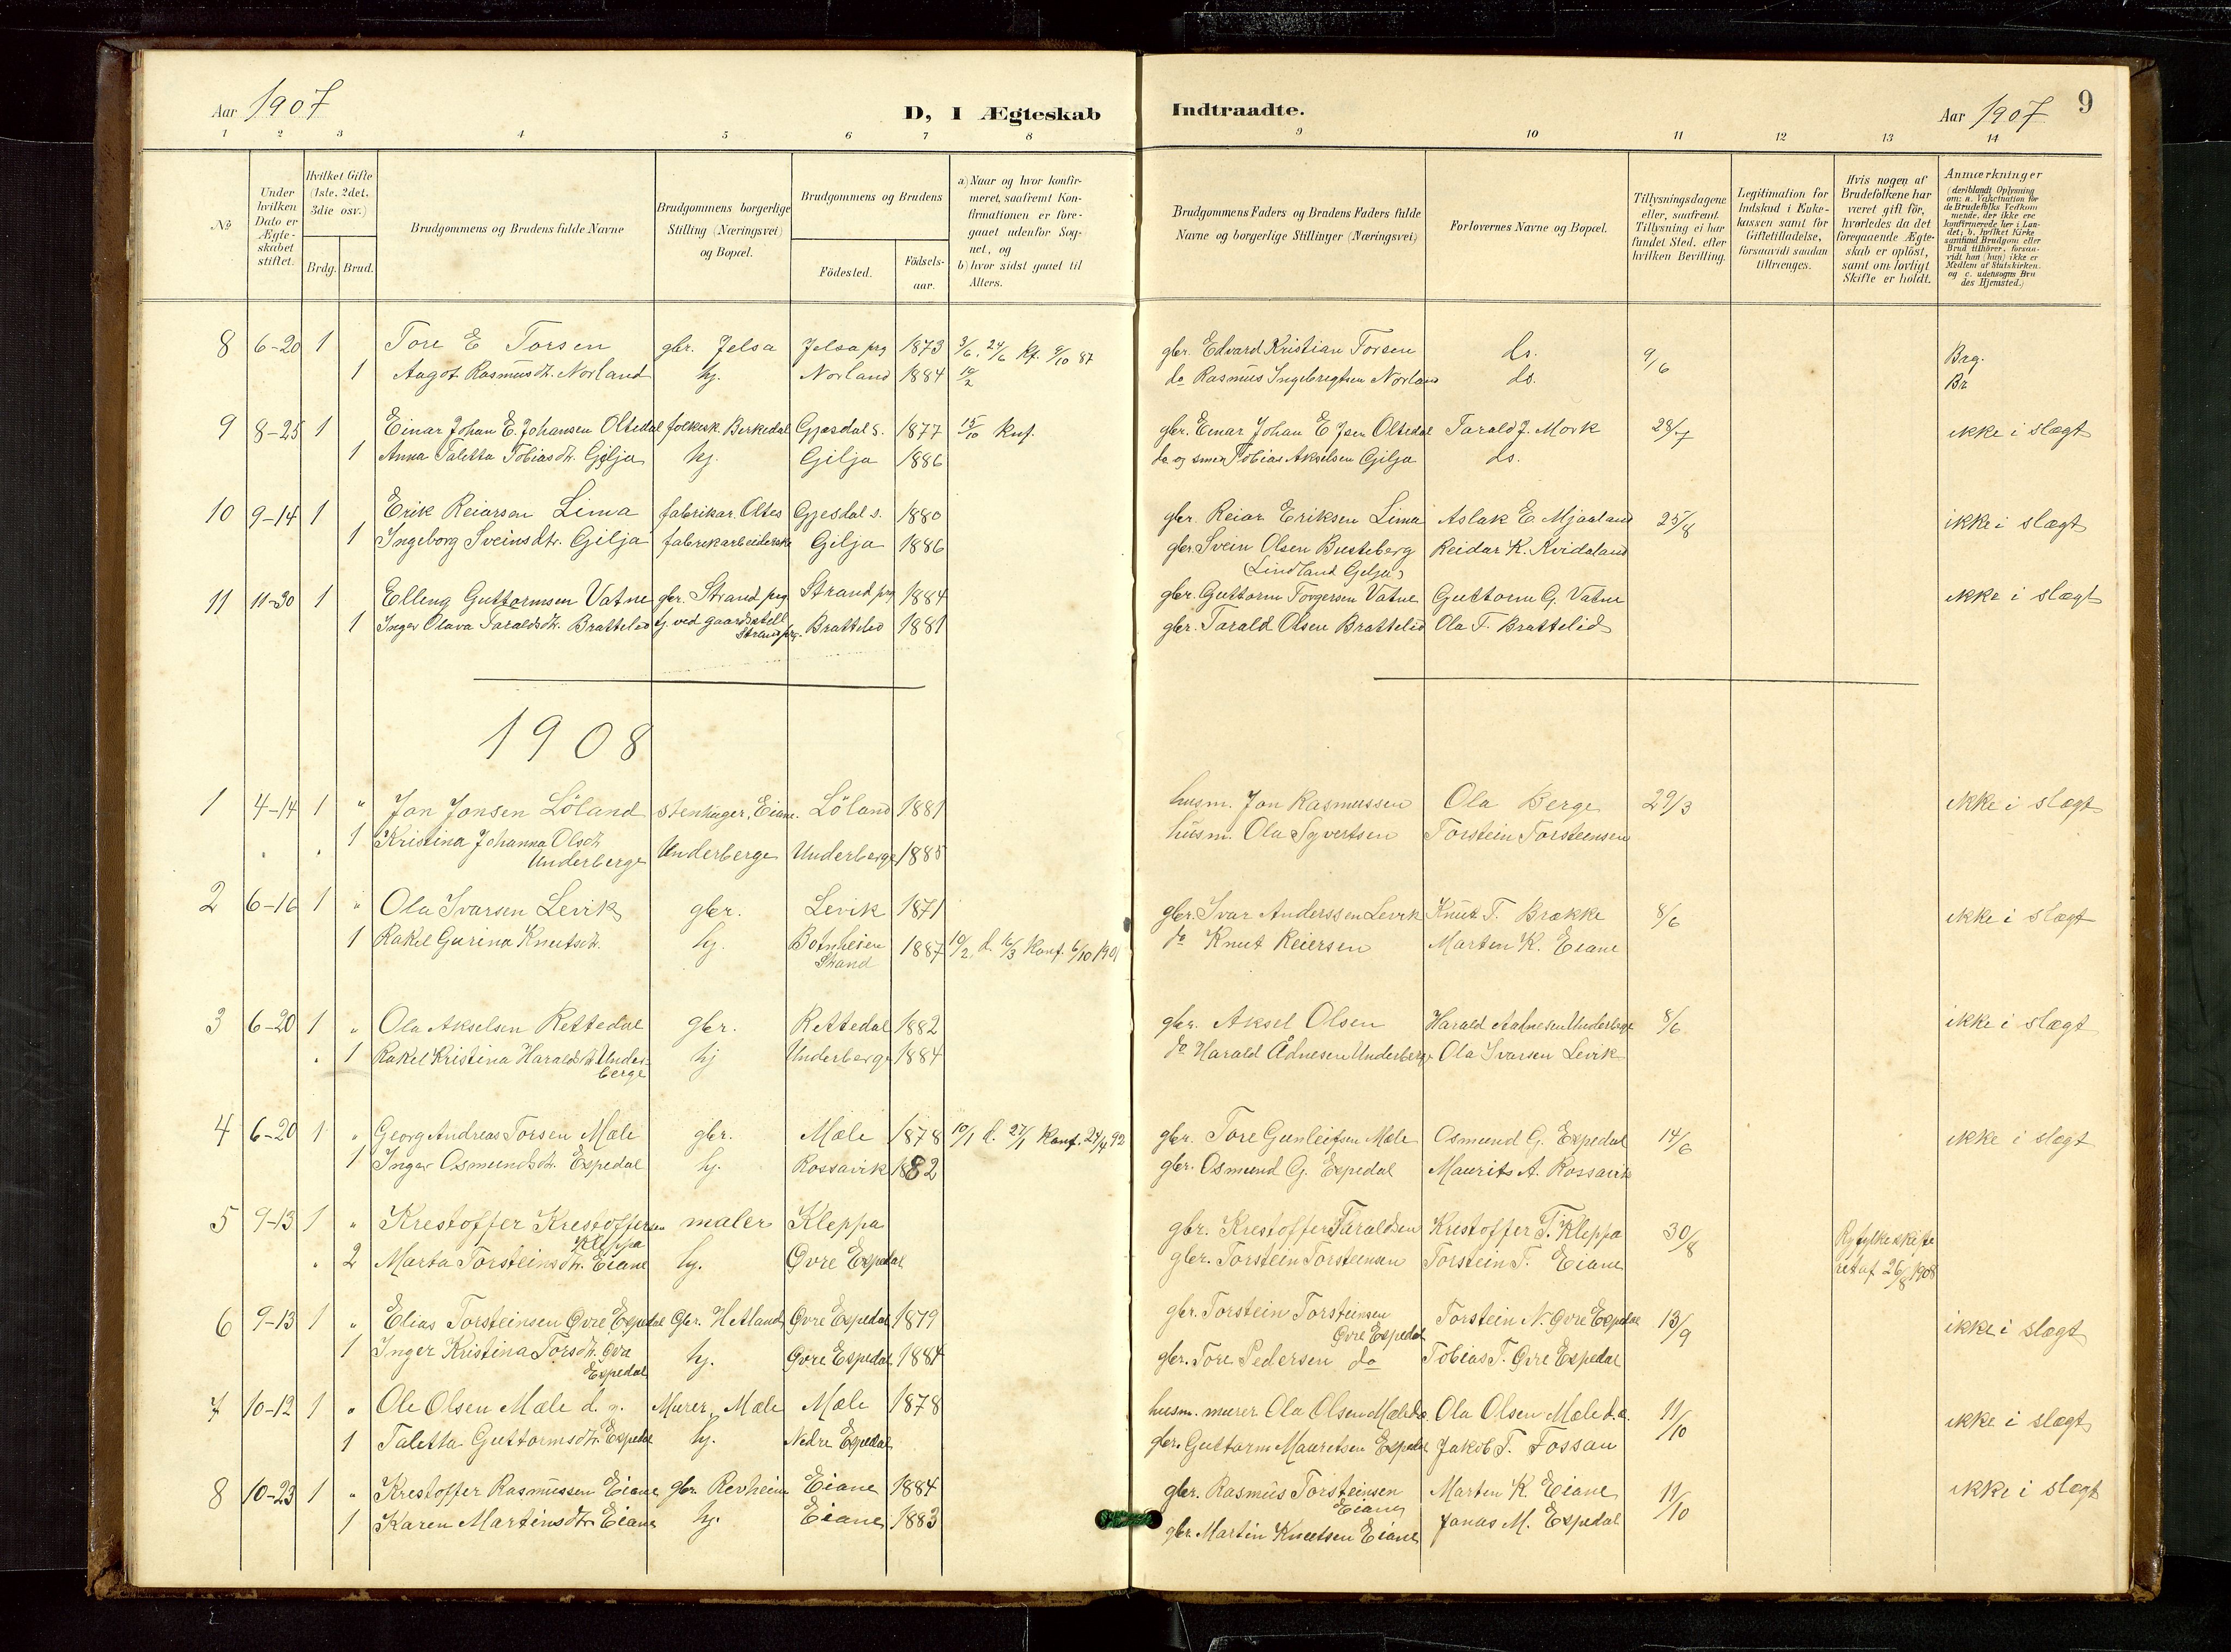 Aar 1907
D, I Ægteskab
Indtraadte.
Aar 1907
9
1 2 3 4 5 6 7 8
9 10 11 12 13 14
No
Under hvilken Dato er Ægteskabet stiftet.
Hvilket Gifte (1ste, 2det, 3die osv.)
Brdg. Brud.
Brudgommens og Brudens fulde Navne
Brudgommens borgerlige Stilling (Næringsvei) og Bopæl.
Brudgommens og Brudens
Födested.
Födsels-aar.
a) Naar og hvor konfirmeret, saafremt Konfirmationen er foregaaet udenfor Sognet, og
b) hvor sidst gaaet til Alters.
Brudgommens Faders og Brudens Faders fulde Navne og borgerlige Stillinger (Næringsvei)
Forlovernes Navne og Bopæl.
Tillysningsdagene eller, saafremt Tillysning ei har fundet Sted, efter hvilken Bevilling.
Legitimation for Indskud i Enkekassen samt for Giftetilladelse, forsaavidt saadan tiltrænges.
Hvis nogen af Brudefolkene har været gift för, hvorledes da det foregaaende Ægteskab er oplöst, samt om lovligt Skifte er holdt.
Anmærkninger
(deriblandt Oplysning om: a. Vakcination for de Brudefolks Vedkommende, der ikke ere konfirmerede her i Landet; b. hvilket Kirkesamfund Brudgom eller Brud tilhörer, forsaavidt han (hun) ikke er Medlem af Statskirken. og c. udensogns Brudes Hjemsted.)
8 6-20 1 Tore E Torsen gbr. Jelsa Jelsa prg 1873 3/6, 24/6 Kf. 9/10 87 gbr. Edvard Kristian Torsen ds. 9/6 Brg.
1 Aagot Rasmusdtr. Norland hj. Norland 1884 19/2 do Rasmus Ingebrigtsen Norland ds. Br
9 8-25 1 Einar Johan E. Johansen Oltedal folkesk. Birkedal Gjæsdal s. 1877 15/10 Knf. gbr. Einar Johan E Jsen Oltedal Tarald J. Mork 28/7 ikke i slægt
1 Anna Taletta Tobiasdtr. Gilja hj. Gilja 1886 do og smed Tobias Akselsen Gilja ds.
10 9-14 1 Erik Reiarsen Lima fabrikar. Oltes Gjesdal s. 1880 gbr. Reiar Eriksen Lima Aslak E. Mjaaland 25/8 ikke i slægt
1 Ingeborg Sveinsdtr. Gilja fabrikarbeiderske Gilja 1886 gbr. Svein Olsen Busteberg Reidar K. Kvidaland
(Lindland Gilja)
11 11-30 1 Elling Guttormsen Vatne gbr. Strand prg Strand prg 1884 gbr. Guttorm Torgersen Vatne Guttorm G. Vatne ikke i slægt
1 Inger Olava Taraldsdtr. Brattelid hj. ved gaardsstell Brattelid 1881 gbr. Tarald Olsen Brattelid Ola T. Brattelid
Strand prg.
1908
1 4-14 1 " Jon Jonsen Löland stenhuger, Eiane. Löland 1881 husm. Jon Rasmussen Ola Berge 29/3 ikke i slægt
1 Kristina Johanna Olsdtr Underberge Underberge 1885 husm. Ola Syvertsen Torstein Torsteensen
Underberge
2 6-16 1 " Ola Ivarsen Levik gbr. Levik 1871 gbr. Ivar Anderssen Levik Knut T. Brække 8/6 ikke i slægt
1 Rakel Gurina Knutsdtr. hj. Botnheien 1887 10/2 d. 16/3 Konf. 6/10 1901 do Knut Reiersen Marten K. Eiane
Strand
3 6-20 1 " Ola Akselsen Rettedal gbr. Rettedal 1882 gbr. Aksel Olsen Harald Aadnesen Underberge 8/6 ikke i slægt
1 Rakel Kristina Haraldsdtr Under- hj Underberge 1884 do Harald Ådnesen Underberge Ola Ivarsen Levik
berge
4 6-20 1 " Georg Andreas Torsen Mæle gbr. Mæle 1878 10/1 d. 27/1 Konf. 24/4 92 gbr. Tore Gunleifsen Mæle Osmund G. Espedal 14/6 ikke i slægt
1 Inger Osmundsdtr. Espedal hj. Rossavik 1882 gbr. Osmund G. Espedal Maurits A. Rossavik
5 9-13 1 " Krestoffer Krestoffersen maler Kleppa gbr. Krestoffer Taraldsen Krestoffer T. Kleppa 30/8 Ryfylke skifte
Kleppa
2 Marta Torsteinsdtr. Eiane hj. Øvre Espedal gbr. Torstein Torsteinsen Torstein T. Eiane ret af 26/8 1908
6 9-13 1 " Elias Torsteinsen Øvre Espedal Gbr. Hetland Øvre Espedal 1879 gbr. Torstein Torsteinsen Torstein N. Øvre Espedal 13/9 ikke i slægt
Øvre Espedal
1 Inger Kristina Torsdtr. Øvre hj. Øvre Espedal 1884 gbr. Tore Pedersen do Tobias T. Øvre Espedal
Espedal
7 10-12 1 " Ole Olsen Mæle d. y. Murer, Mæle Mæle 1878 husm. murer Ola Olsen Mæle d.æ. Ola Olsen Mæle d.æ. 11/10 ikke i slægt
1 Taletta Guttormsdtr. Espedal hj. Nedre Espedal gbr. Guttorm Mauretsen Espedal Jakob T. Fossan
8 10-23 1 " Krestoffer Rasmussen Eiane gbr. Revheim Eiane 1884 gbr. Rasmus Torsteinsen Marten K. Eiane 11/10 ikke i slægt
Eiane
1 Karen Martinsdtr. Eiane hj. Eiane 1883 gbr. Martin Knutsen Eiane Jonas M. Espedal